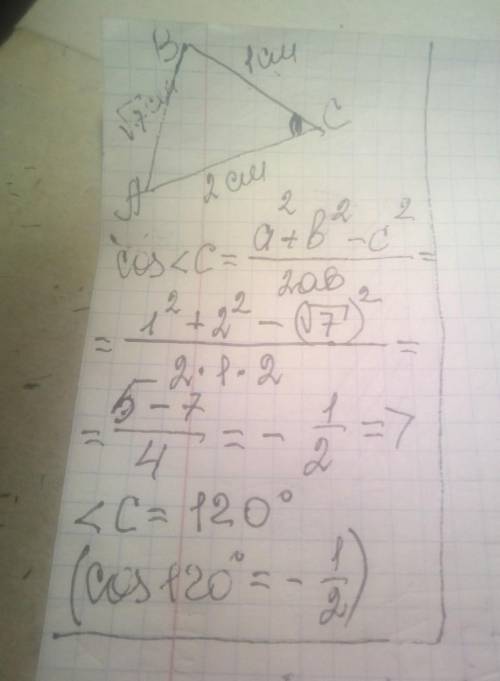 B
1 см
√7 см
C
A
2 см
cos<C = (a² + b² - c²) / 2ab =
= (1² + 2² - (√7)²) / 2·1·2 =
= (5 - 7) / 4 = - 1/2 =>
<C = 120°
(cos 120° = - 1/2)